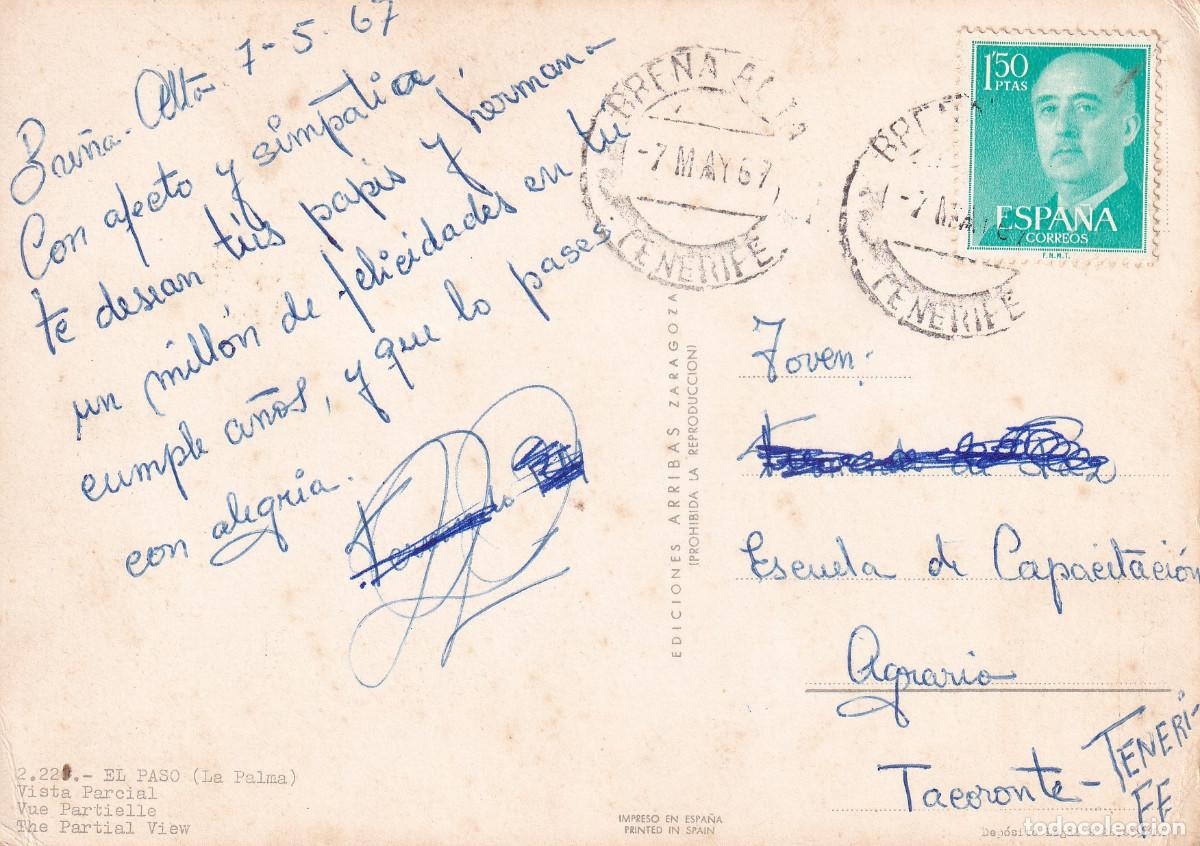 Breña-Alta 7-5-67
Con afecto y simpatia,
te desean tús papis y hermana
un millón de felicidades en tu
cumple años, y que lo pases
con alegria.
BREÑA ALTA
-7 MAY 67
TENERIFE
BREÑ
-7 MAY 67
TENERIFE
1'50
PTAS
ESPAÑA
CORREOS
F.N.M.T.
EDICIONES ARRIBAS ZARAGOZA
(PROHIBIDA LA REPRODUCCION)
Joven:
Escuela de Capacitación
Agraria
Tacoronte-TENERI-
FE
2.22 .- EL PASO (La Palma)
Vista Parcial
Vue Partielle
The Partial View
IMPRESO EN ESPAÑA
PRINTED IN SPAIN
Depósito Legal
todocoleccion